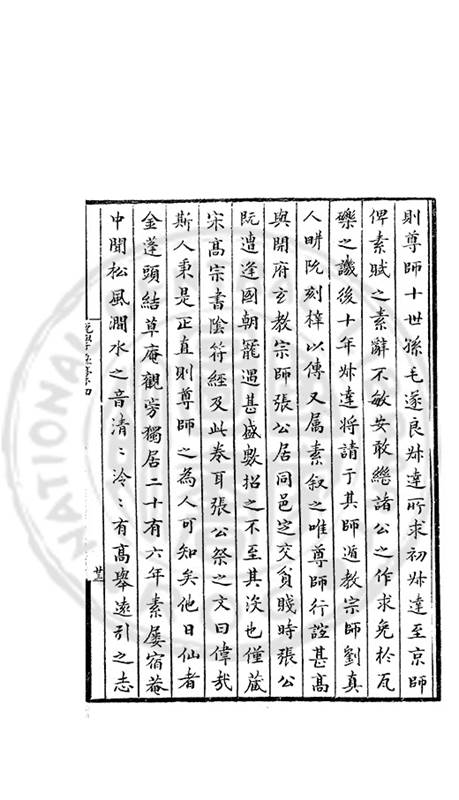 則尊師十世孫毛遂良叔達所求初叔達至京師
俾素賦之素辭不敏安敢繼諸公之作求免於瓦
礫之譏後十年叔達將請于其師道教宗師劉真
人畊阮刻梓以傳又属素叙之唯尊師行誼甚高
與開府玄教宗師張公居同邑定交貧賤時張公
既遭逢國朝寵遇甚盛數招之不至其沒也僅蔵
宋髙宗書陰符經及此卷耳張公祭之文曰偉哉
斯人秉是正直則尊師之為人可知矣他日仙者
金蓬頭結草庵觀旁獨居二十有六年素屢宿菴
中聞松風澗水之音清〻泠〻有高舉遠引之志